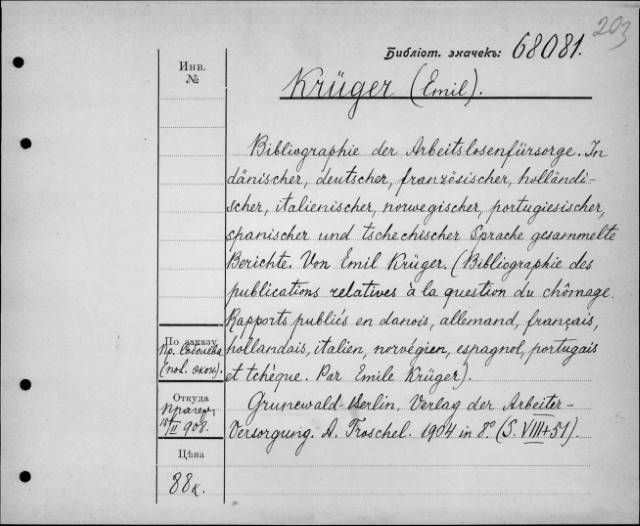 203
Библіот. значекъ: 68081.
Инв.
№
Krüger (Emil).
Bibliographie der Arbeitslosenfürsorge. In
dänischer, deutscher, französischer, holländi-
scher, italienischer, norwegischer, portugiesischer,
spanischer und tschechischer Sprache gesammelte
Berichte. Von Emil Krüger. (Bibliographie des
publications relatives à la question du chômage.
Rapports publiés en danois, allemand, français,
hollandais, italien, norvégien, espagnol, portugais
et tchèque. Par Emile Krüger).
Grunewald-Berlin. Verlag der Arbeiter-
Versorgung. A. Troschel. 1904 in 8° (S. VIII+51).
По заказу
Пр. Соболева
(пол. экон).
Откуда
II 908.
Цѣна
88к.